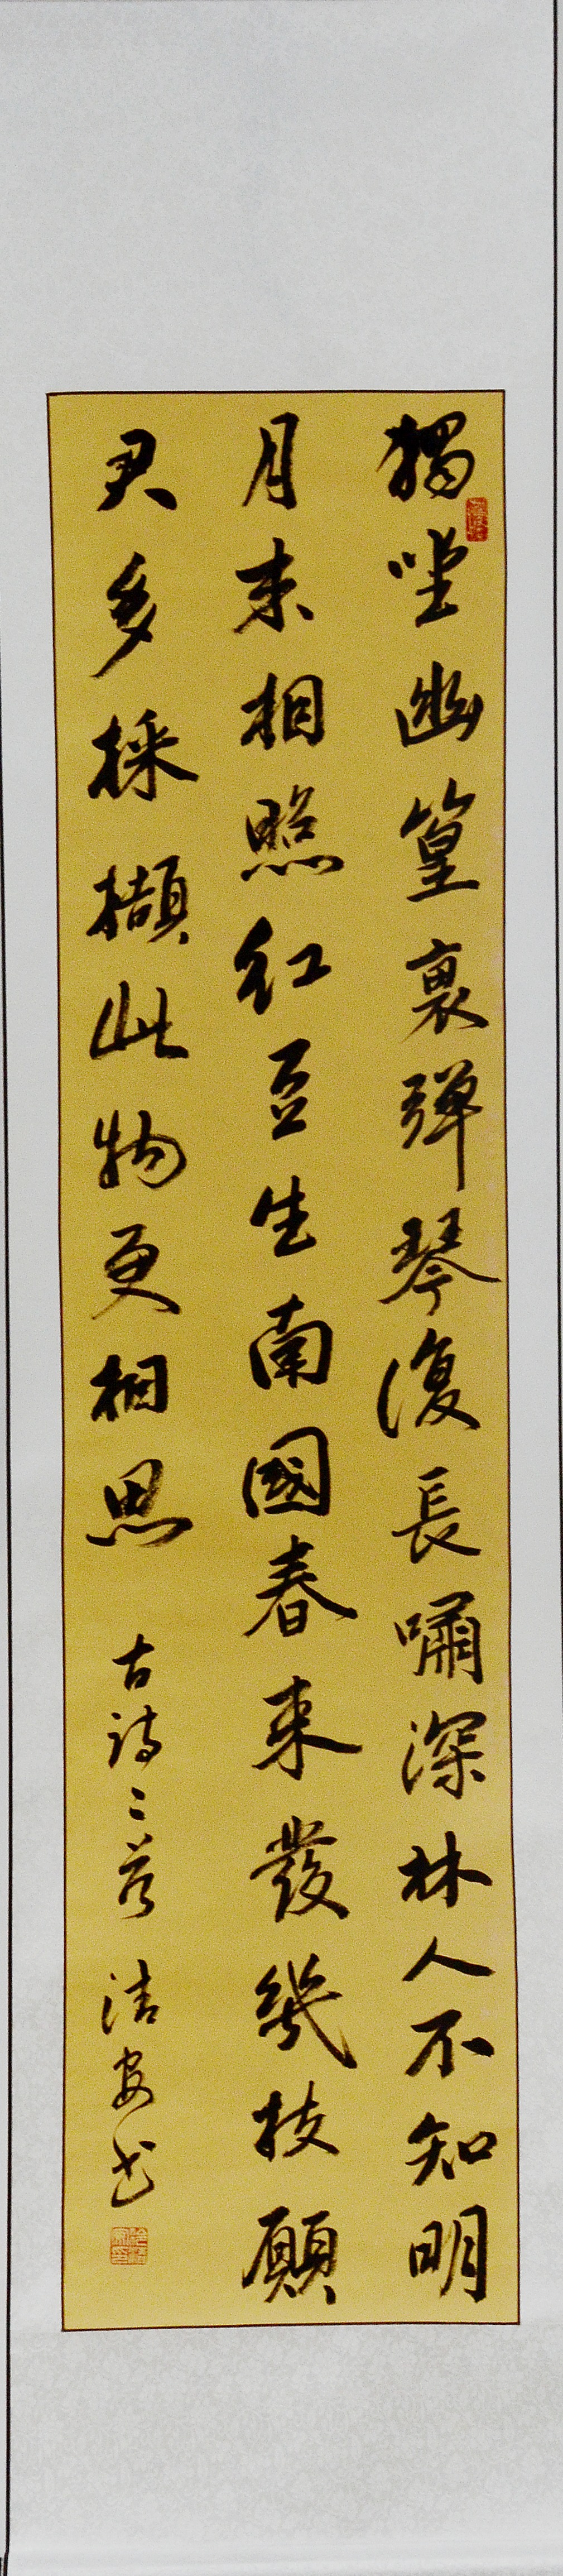 獨坐幽篁裏彈琴復長嘯深林人不知明
月来相照紅豆生南國春来發幾枝願
君多採擷此物更相思
古诗二首 清安书